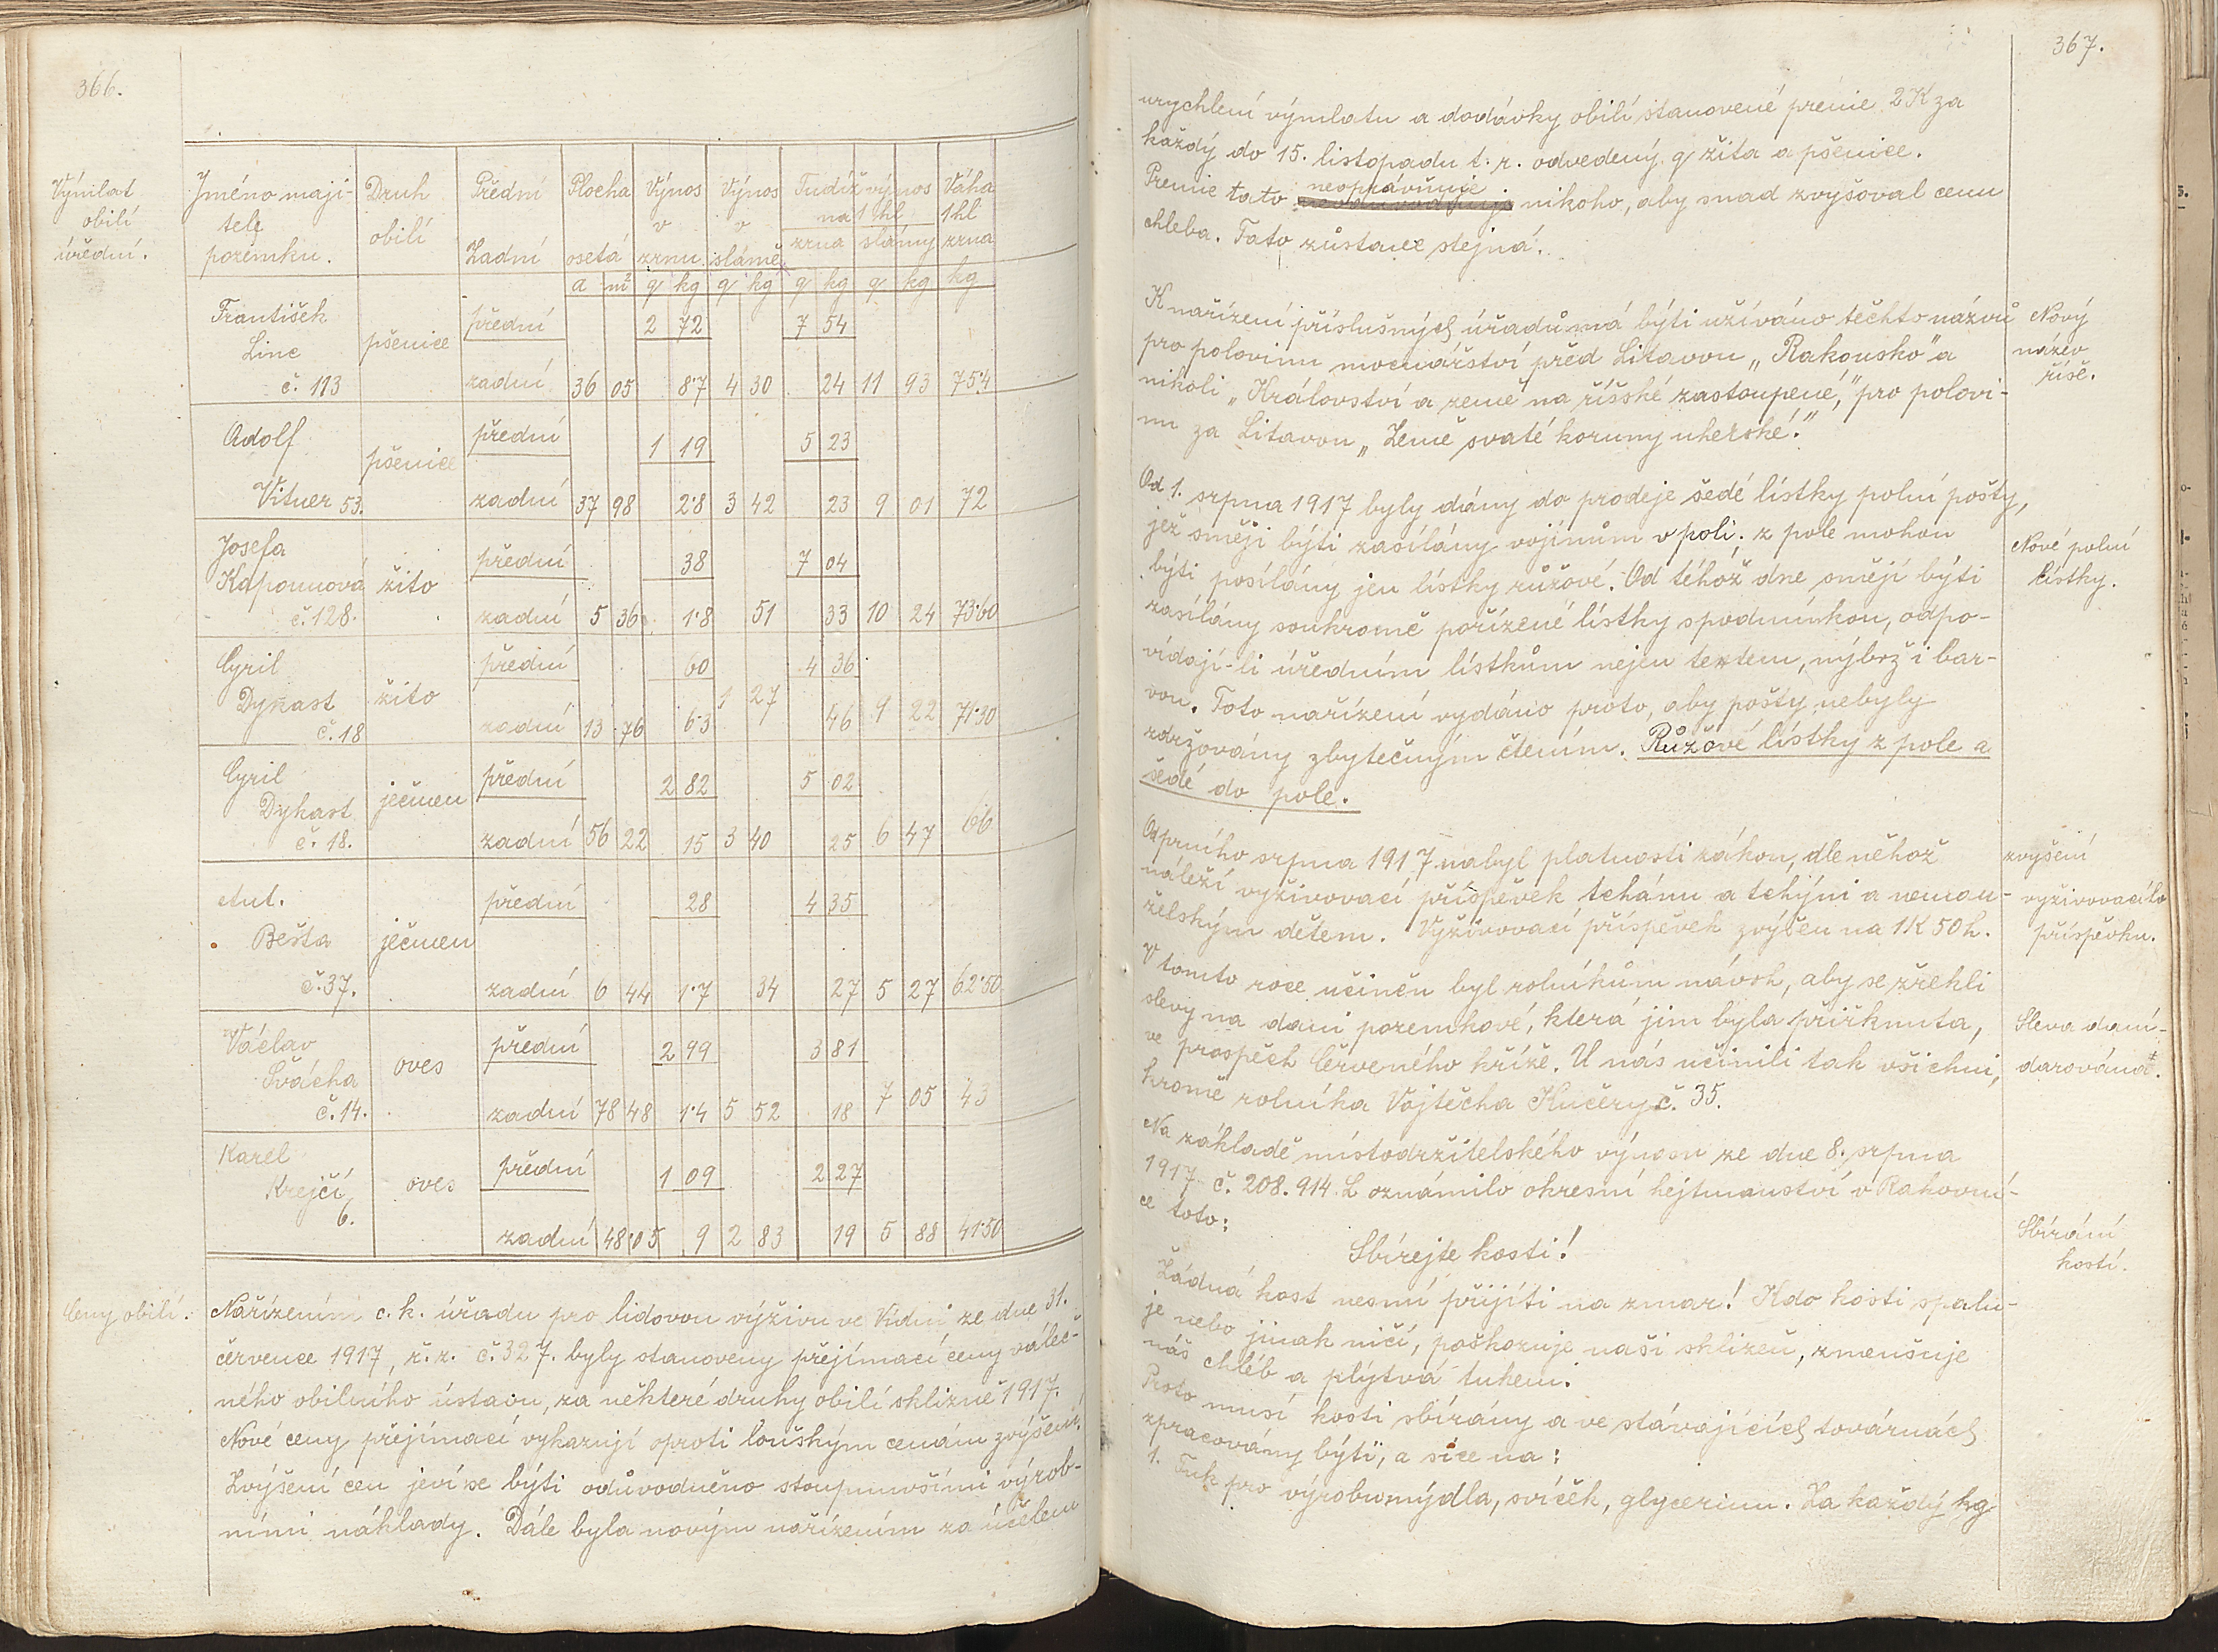 366.
Výmlat
obilí
úřední.
Jméno maji- Druh Přední Plocha Výnos Výnos Tudíž výnos Váha
tele obilí v v na 1 hl 1 hl
pozemku. Zadní osetá zrnu slámě zrna slámy zrna
a m² q kg q kg q kg q kg kg
František přední 2 72 7 54
Linc pšenice
č. 113 zadní 36 05 8·7 4 30 24 11 93 75·4
Adolf přední 1 19 5 23
pšenice
Vituer 53. zadní 37 98 2·8 3 42 23 9 01 72
Josefa přední 38 7 04
Kapounová žito
č. 128. zadní 5 36 1·8 51 33 10 24 73·60
Cyril přední 60 4 36
Dykast žito 1 27
č. 18 zadní 13 76 6·3 46 9 22 71·30
Cyril přední 2 82 5 02
Dykast ječmen
č. 18. zadní 56 22 15 3 40 25 6 47 66
Ant. přední 28 4 35
Bešta ječmen
č. 37. zadní 6 44 1·7 34 27 5 27 62·50
Václav přední 2 99 3 81
Švácha oves
č. 14. zadní 78 48 1·4 5 52 18 7 05 43
Karel přední 1 09 2 27
Krejčí oves
6. zadní 48·05 9 2 83 19 5 88 41·50
Ceny obilí.
Nařízením c. k. úřadu pro lidovou výživu ve Vídni ze dne 31.
července 1917, ř. z. č. 327. byly stanoveny přejímací ceny váleč-
ného obilního ústavu, za některé druhy obilí sklizně 1917.
Nové ceny přejímací vykazují oproti loňským cenám zvýšení.
Zvýšení cen jeví se býti odůvodněno stoupnuvšími výrob-
ními náklady. Dále byla novým nařízením za účelem
367.
urychlení výmlatu a dodávky obilí stanovené prémie 2 K za
každý do 15. listopadu t. r. odvedený q žita a pšenice.
Premie tato neoprávňuje nikoho, aby snad zvyšoval cenu
chleba. Tato zůstane stejná.
K nařízení příslušných úřadů má býti užíváno těchto názvů
pro polovinu mocnářství před Litavou „Rakousko" a
nikoli „Království a země na říšské zastoupené," pro polovi-
nu za Litavou „Země svaté koruny uherské."
Nový
název
říše.
Od 1. srpna 1917 byly dány do prodeje šedé lístky polní pošty,
jež smějí býti zasílány vojínům v poli; z pole mohou
býti posílány jen lístky růžové. Od téhož dne smějí býti
zasílány soukromě pořízené lístky s podmínkou, odpo-
vídají-li úředním lístkům nejen textem, nýbrž i bar-
vou. Toto nařízení vydáno proto, aby pošty nebyly
zdržovány zbytečným čtením. Růžové lístky z pole a
šedé do pole.
Nové polní
lístky.
Od prního srpna 1917 nabyl platnosti zákon, dle něhož
náleží vyživovací příspěvek tchánu a tchýni a neman-
želským dětem. Vyživovací příspěvek zvýšen na 1 K 50 h.
zvyšení
vyživovacího
příspěvku.
V tomto roce učiněn byl rolníkům návrh, aby se zřekli
slevy na dani pozemkové, která jim byla přiřknuta,
ve prospěch Červeného kříže. U nás učinili tak všichni,
kromě rolníka Vojtěcha Kučery č. 35.
Sleva daní-
darována.
Na základě místodržitelského výnosu ze dne 8. srpna
1917 č. 208.914. L oznámilo okresní hejtmanství v Rakovní-
ce toto:
Sbírejte kosti!
Sbírání
kostí.
Žádná kost nesmí přijíti na zmar! Kdo kosti spalu-
je nebo jinak ničí, poškozuje naši sklizeň, zmenšuje
náš chléb a plýtvá tukem.
Proto musí kosti sbírány a ve stávajících továrnách
zpracovány býti, a sice na:
1. Tuk pro výrobu mýdla, svíček, glycerinu. Za každý kg